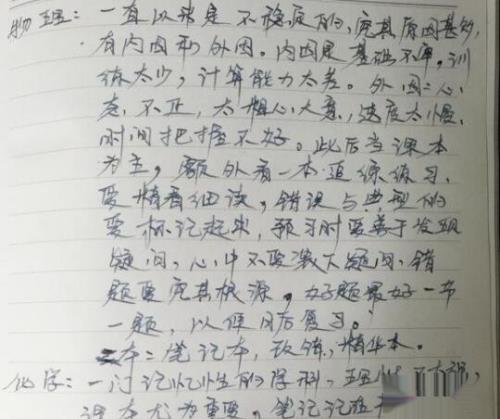 物理:一直以来是不稳定的,究其原因甚多,
有内因和外因。内因是基础不牢,训
练太少,计算能力太差。外因:心
态不正,太粗心大意,速度太慢,
时间把握不好。此后当课本
为主,额外看一本,追练练习,
要精看细读,错误与典型的
要标记起来,预习时要善于发现
疑问,心中不要装下疑问,错
题要究其根源,好题最好一节
一题,以便日后复习。
本:笔记本,改错,精华本。
化学:一门记忆性的学科,理性不太强,
课本尤为重要,笔记